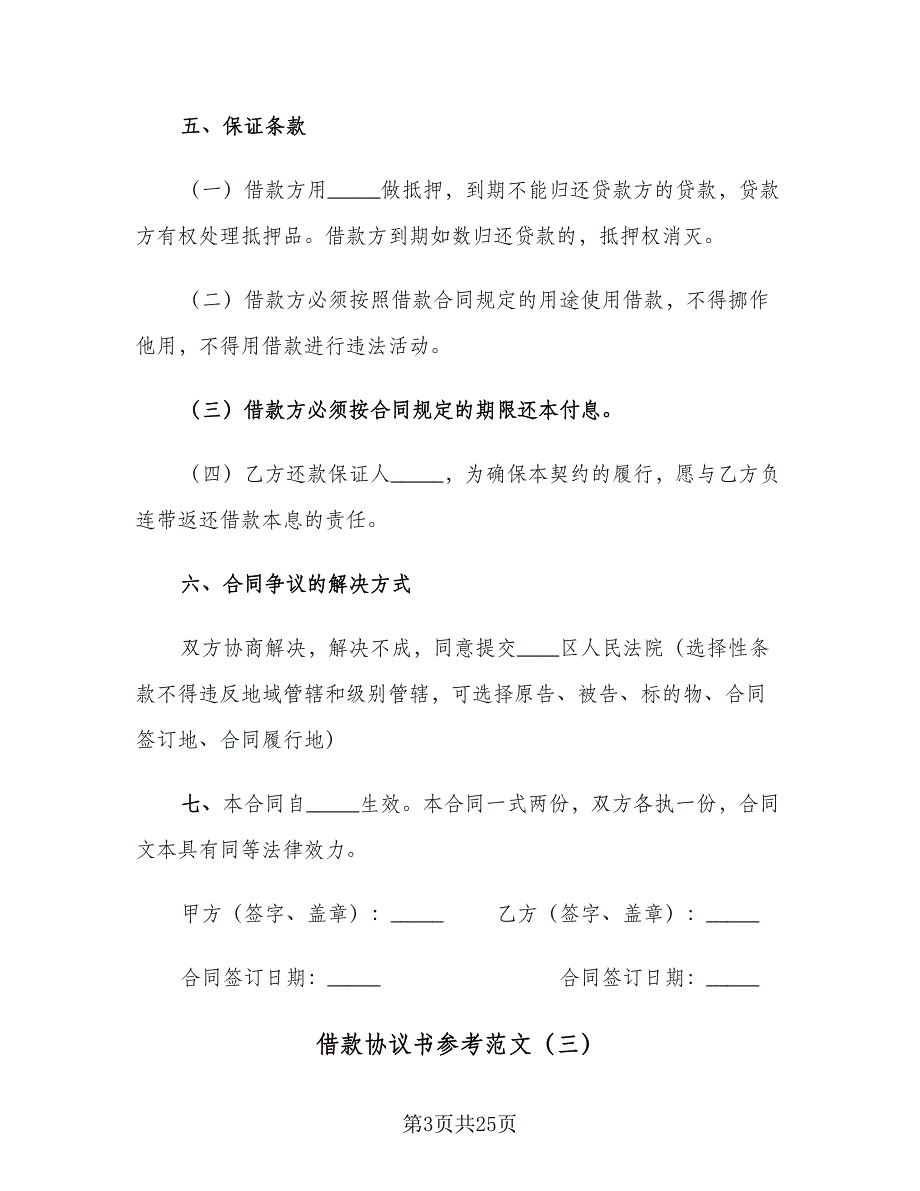 五、保证条款
（一）借款方用_____做抵押，到期不能归还贷款方的贷款，贷款
方有权处理抵押品。借款方到期如数归还贷款的，抵押权消灭。
（二）借款方必须按照借款合同规定的用途使用借款，不得挪作
他用，不得用借款进行违法活动。
（三）借款方必须按合同规定的期限还本付息。
（四）乙方还款保证人_____，为确保本契约的履行，愿与乙方负
连带返还借款本息的责任。
六、合同争议的解决方式
双方协商解决，解决不成，同意提交____区人民法院（选择性条
款不得违反地域管辖和级别管辖，可选择原告、被告、标的物、合同
签订地、合同履行地）
七、本合同自_____生效。本合同一式两份，双方各执一份，合同
文本具有同等法律效力。
甲方（签字、盖章）：_____ 乙方（签字、盖章）：_____
合同签订日期：_____ 合同签订日期：_____
借款协议书参考范文（三）
第3页共25页